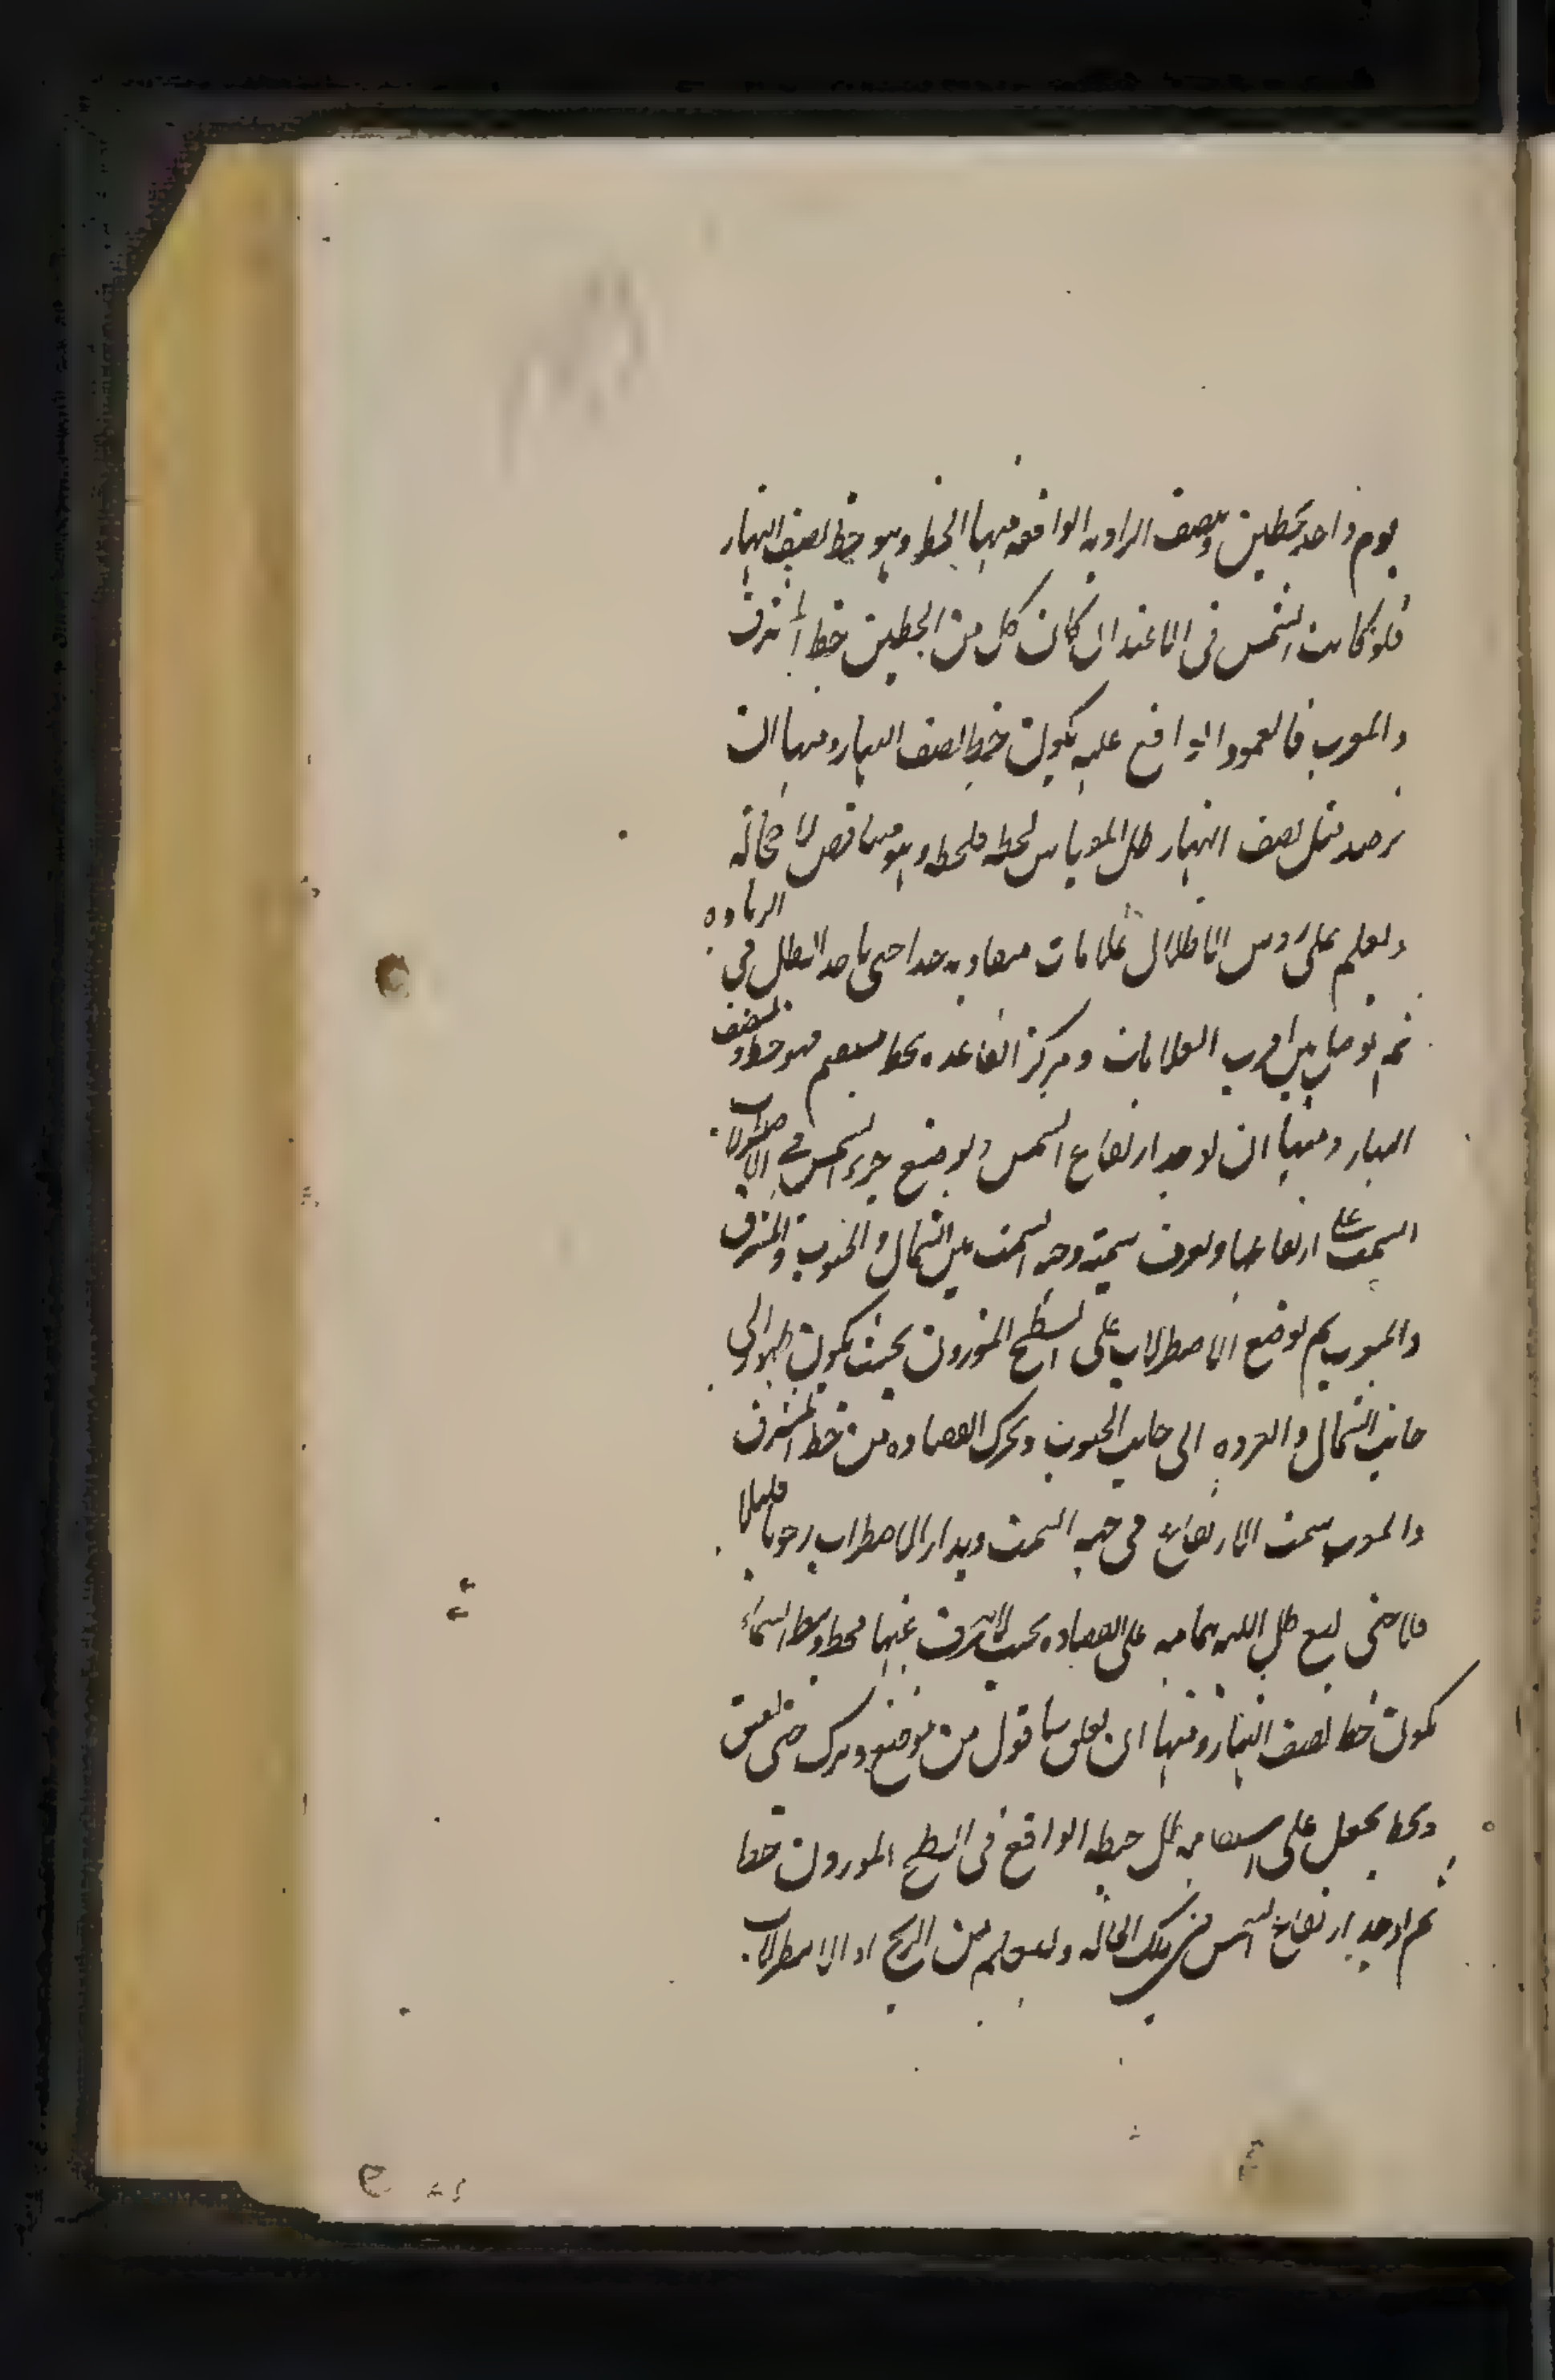 يوم واحد بخطين وينصف الزاويه الواقعه منهما بالخط وهو خط نصف النهار
فلو كانت الشمس في الاعتدال كان كل من الخطين خط المشرق
والمغرب فالعمود الواقع عليه يكون خط نصف النهار ومنها ان
نرصد قبل نصف النهار ظل المقياس لحظه فلحظه وهو متناقص لا محاله
ونعلم على رؤس الاظلال علامات متقاربه جدا حتى ياخذ الظل في الزياده
ثم نوصل بين اقرب العلامات ومركز القاعده بخط مستقيم فهو خط نصف
النهار ومنها ان يوخذ ارتفاع الشمس ويوضع جزء الشمس في الاصطرلاب
السمت على ارتفاعها ويعرف سمته وجهه السمت عن الشمال والجنوب والمشرق
والمغرب ثم يوضع الاصطرلاب على السطح الموزون بحيث يكون ظهره الى
جانب الشمال والعروه الى جانب الجنوب ويحرك العضاده من خط المشرق
والمغرب سمت الارتفاع في جهه السمت ويدار الاصطرلاب رحويا قليلا
قليلا حتى يقع ظل اللبنه بتمامه على العضاده بحيث لا ينحرف عنها فخط وسط السماء
يكون خط نصف النهار ومنها ان يعلق شاقول من موضع ويترك حتى
ويخط بعجل على استقامه ظل خيطه الواقع في السطح الموزون خط
ثم يوخذ ارتفاع الشمس في تلك الحاله وليعلم من الزيج او الاصطرلاب